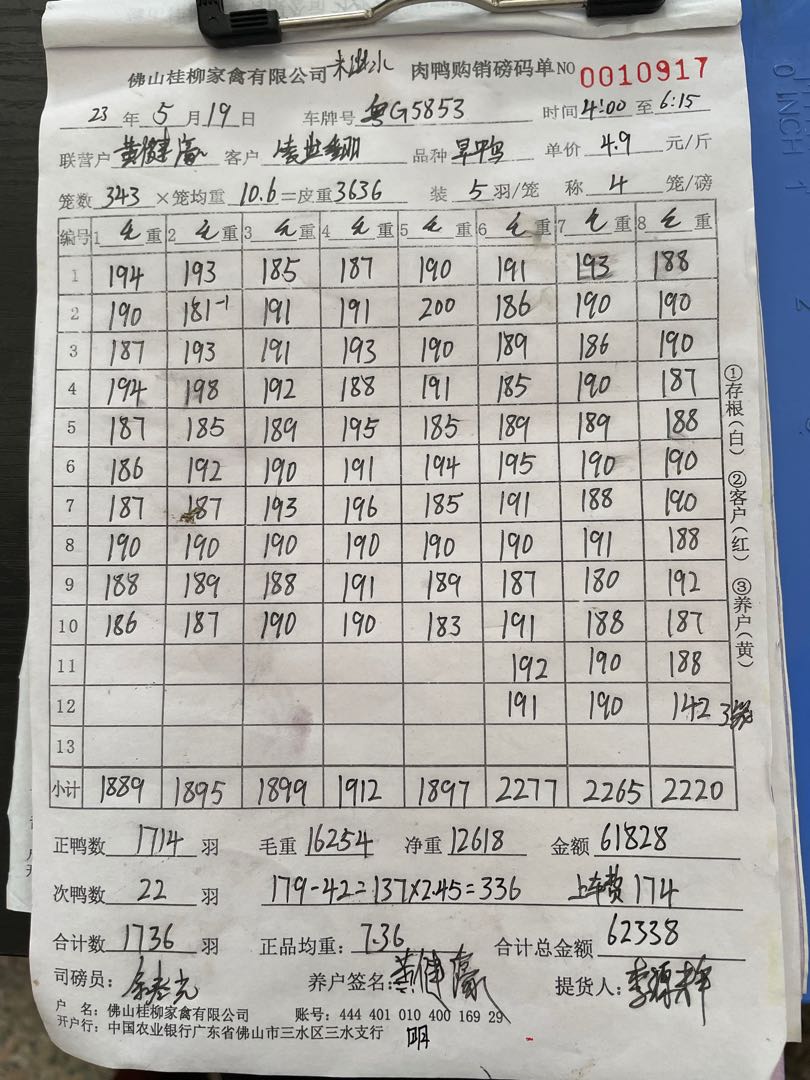 佛山桂柳家禽有限公司 肉鸭购销磅码单 NO 0010917
23 年 5 月 19 日 车牌号 粤G5853 时间 4:00 至 6:15
联营户 黄健濠 客户 品种 旱鸭 单价 4.9 元/斤
笼数 343 ×笼均重 10.6 =皮重 3636 装 5 羽/笼 称 4 笼/磅
编号 1 毛重 2 毛重 3 毛重 4 毛重 5 毛重 6 毛重 7 毛重 8 毛重
1 194 193 185 187 190 191 193 188
2 190 181-1 191 191 200 186 190 190
3 187 193 191 193 190 189 186 190
4 194 198 192 188 191 185 190 187
5 187 185 189 195 185 189 189 188
6 186 192 190 191 194 195 190 190
7 187 187 193 196 185 191 188 190
8 190 190 190 190 190 190 191 188
9 188 189 188 191 189 187 180 192
10 186 187 190 190 183 191 188 187
11 192 190 188
12 191 190 142 3笼
13
小计 1889 1895 1899 1912 1897 2277 2265 2220
正鸭数 1714 羽 毛重 16254 净重 12618 金额 61828
次鸭数 22 羽 179-42=137×2.45=336 上车费 174
合计数 1736 羽 正品均重: 7.36 合计总金额 62338
司磅员: 养户签名: 黄健濠 提货人:
户 名: 佛山桂柳家禽有限公司 账号: 444 401 010 400 169 29
开户行: 中国农业银行广东省佛山市三水区三水支行
①存根(白) ②客户(红) ③养户(黄)